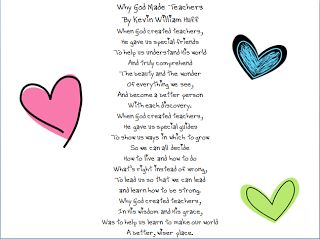 Why God Made Teachers
By Kevin William Huff
When God created teachers,
He gave us special friends
To help us understand his world
And truly comprehend
The beauty and the wonder
Of everything we see,
And become a better person
With each discovery.
When God created teachers,
He gave us special guides
To show us ways in which to grow
So we can all decide
How to live and how to do
What's right instead of wrong,
To lead us so that we can lead
and learn how to be strong.
Why God created teachers,
In his wisdom and his grace,
Was to help us learn to make our world
A better, wiser place.